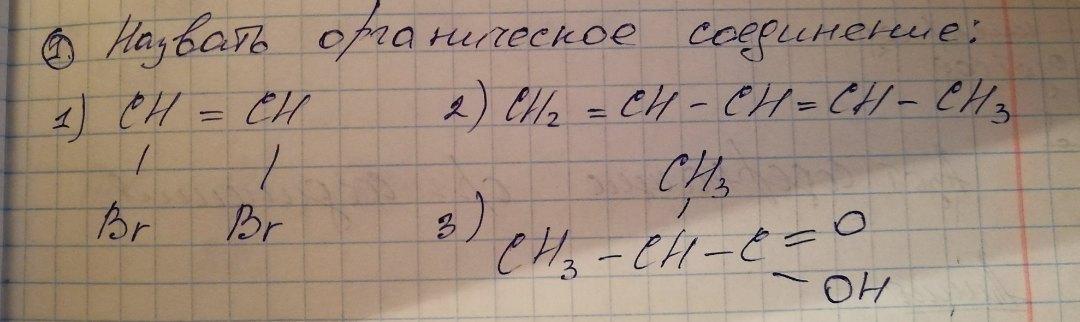 1. Назвать органическое соединение:
1) CH = CH 2) CH₂ = CH - CH = CH - CH₃
/ / CH₃
Br Br 3) /
CH₃ - CH - C = O
- OH